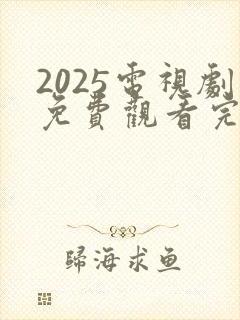 2025電視劇
免費觀看完
歸海求鱼